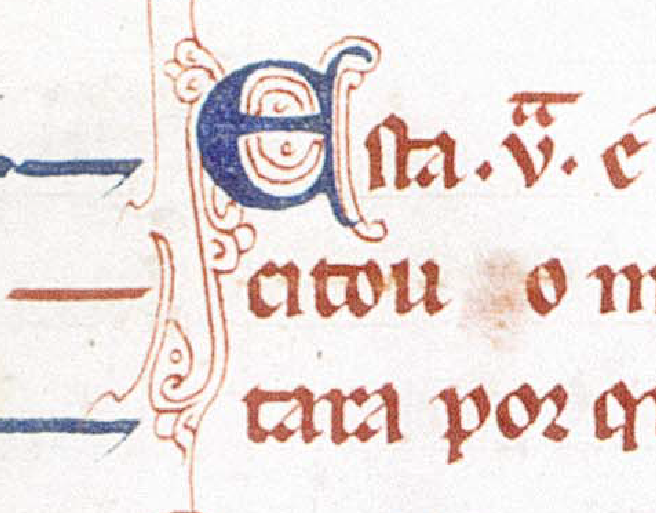 Esta .v̄.ᵃ é
citou o m
tara por q